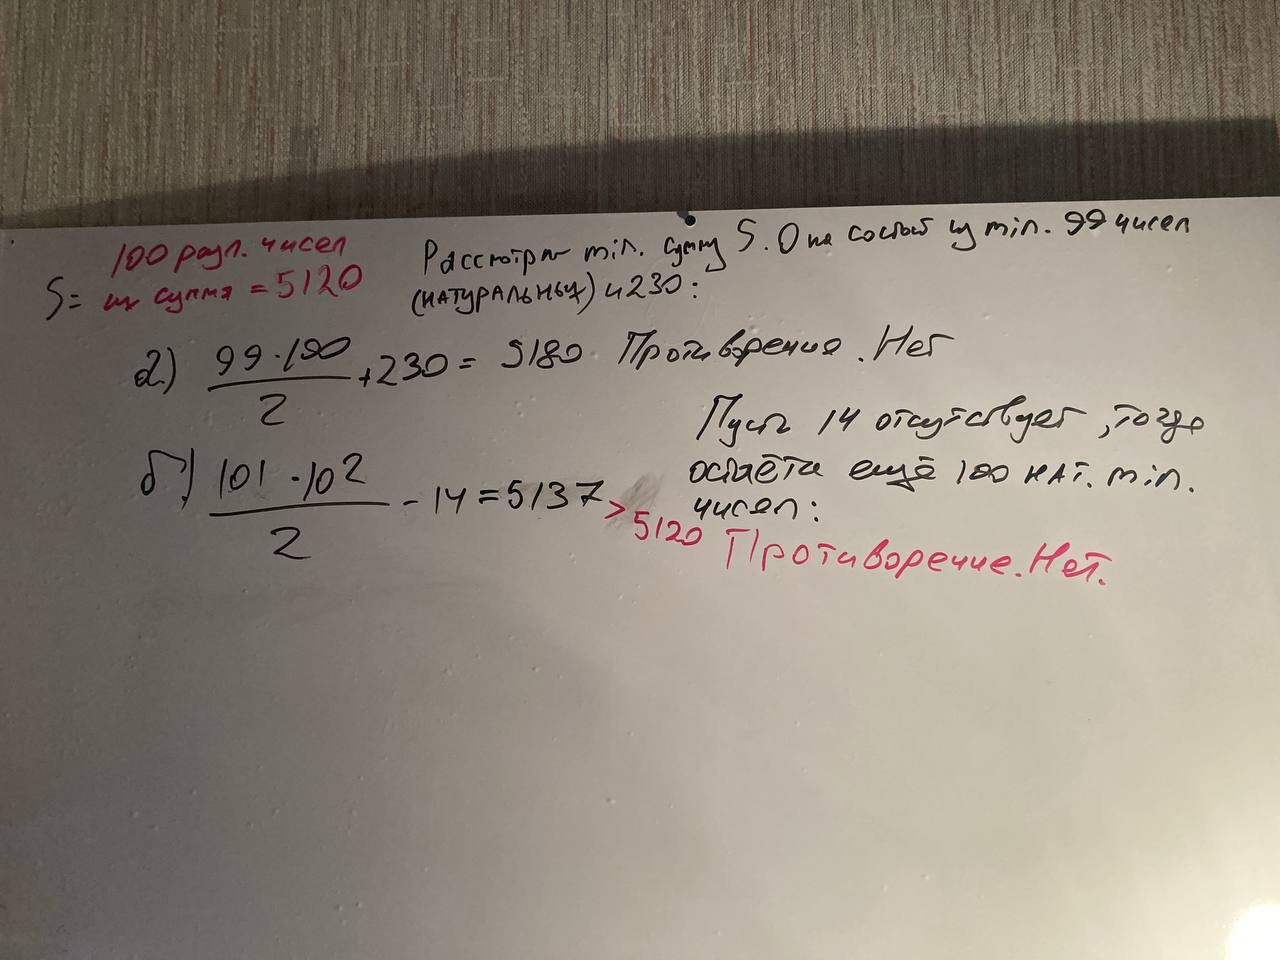 100 разл. чисел
S= их сумма = 5120
Рассмотрим min. сумму S. Она состоит из min. 99 чисел
(НАТУРАЛЬНЫХ) и 230:
а) 99·100/2 + 230 = 5180 Противоречие. Нет
Пусть 14 отсутствует, тогда
остаётся ещё 100 нат. min.
чисел:
б) 101·102/2 - 14 = 5137 > 5120 Противоречие. Нет.